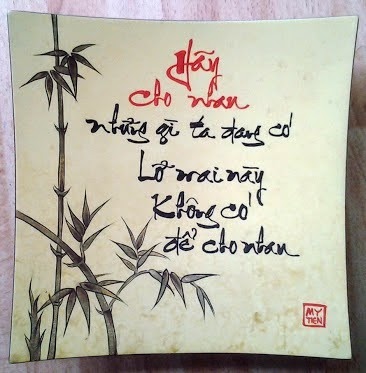 Hãy
cho nhau
những gì ta đang có
Lỡ mai này
Không có
để cho nhau
MỸ
TIÊN